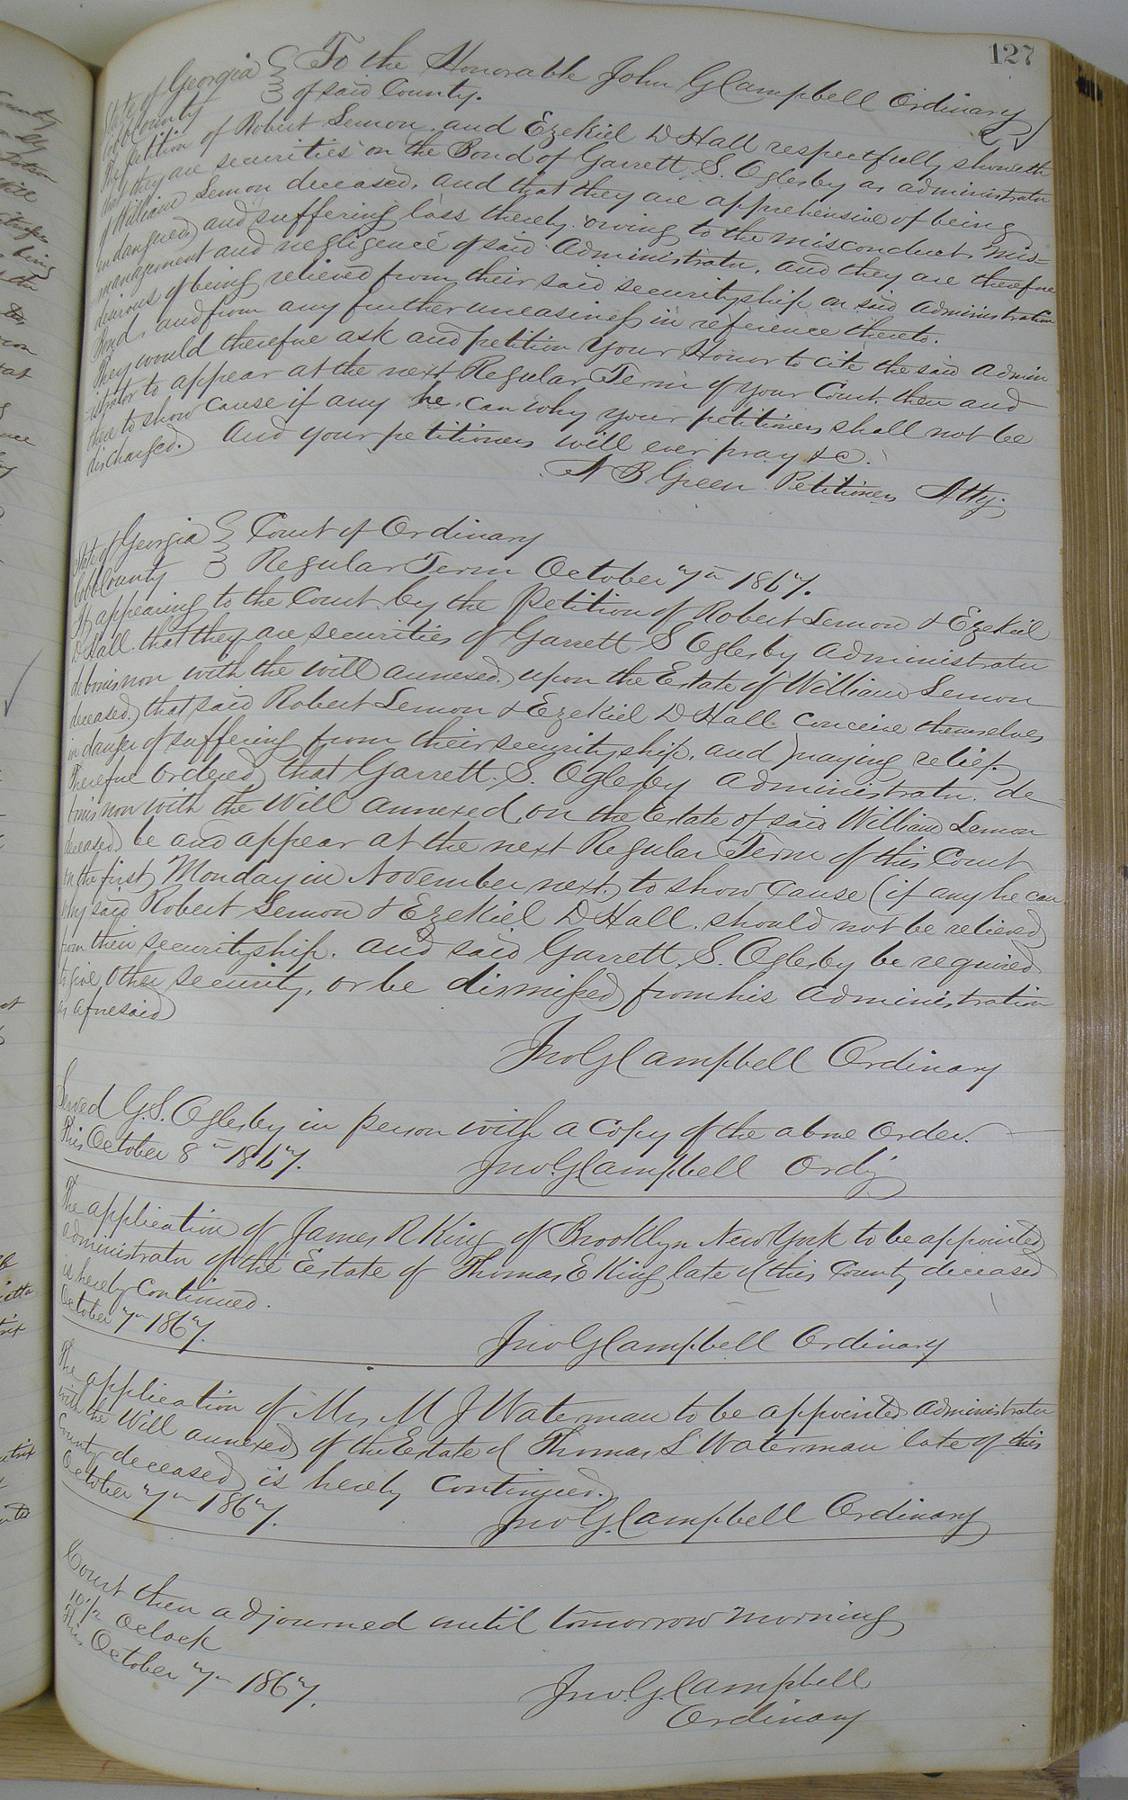 127
State of Georgia } To the Honorable John G Campbell Ordinary
Cobb County } of said County.
The petition of Robert Lemon and Ezekiel D Hall respectfully showeth
that they are securities on the Bond of Garrett S. Oglesby as administrator
of William Lemon deceased, and that they are apprehensive of being
endangered and suffering loss thereby owing to the misconduct, mis-
management and negligence of said Administrator, and they are therefore
desirous of being relieved from their said securityship on said Administration
Bond, and from any further uneasiness in reference thereto.
They would therefore ask and petition your Honor to cite the said Admin
istrator to appear at the next Regular Term of your Court then and
there to show cause if any he can why your petitioners shall not be
discharged. And your petitioners will ever pray &c.
A B Green Petitioners Atty.
State of Georgia } Court of Ordinary
Cobb County } Regular Term October 7th 1867.
It appearing to the Court by the Petition of Robert Lemon & Ezekiel
D Hall that they are securities of Garrett S Oglesby Administrator
de bonis non with the will annexed, upon the Estate of William Lemon
deceased, that said Robert Lemon & Ezekiel D Hall conceive themselves
in danger of suffering from their securityship, and praying relief.
Therefore ordered that Garrett S. Oglesby Administrator de
bonis non with the Will annexed, on the Estate of said William Lemon
deceased be and appear at the next Regular Term of this Court
on the first Monday in November next, to show cause (if any he can
why said Robert Lemon & Ezekiel D Hall should not be relieved
from their securityship. and said Garrett S. Oglesby be required
to give other security, or be dismissed from his administration
as aforesaid
Jno G Campbell Ordinary
Served G.S. Oglesby in person with a copy of the above order.
This October 8th 1867. Jno. G. Campbell Ordy
The application of James R King of Brooklyn New York to be appointed
administrator of the Estate of Thomas E King late of this County deceased
is hereby continued.
October 7th 1867. Jno G Campbell Ordinary
The application of Mrs M J Waterman to be appointed administrator
with the Will annexed of the Estate of Thomas S Waterman late of this
County deceased is hereby continued.
October 7th 1867. Jno G. Campbell Ordinary
Court then adjourned until tomorrow morning
10½ Oclock
This October 7th 1867.
Jno. G. Campbell
Ordinary